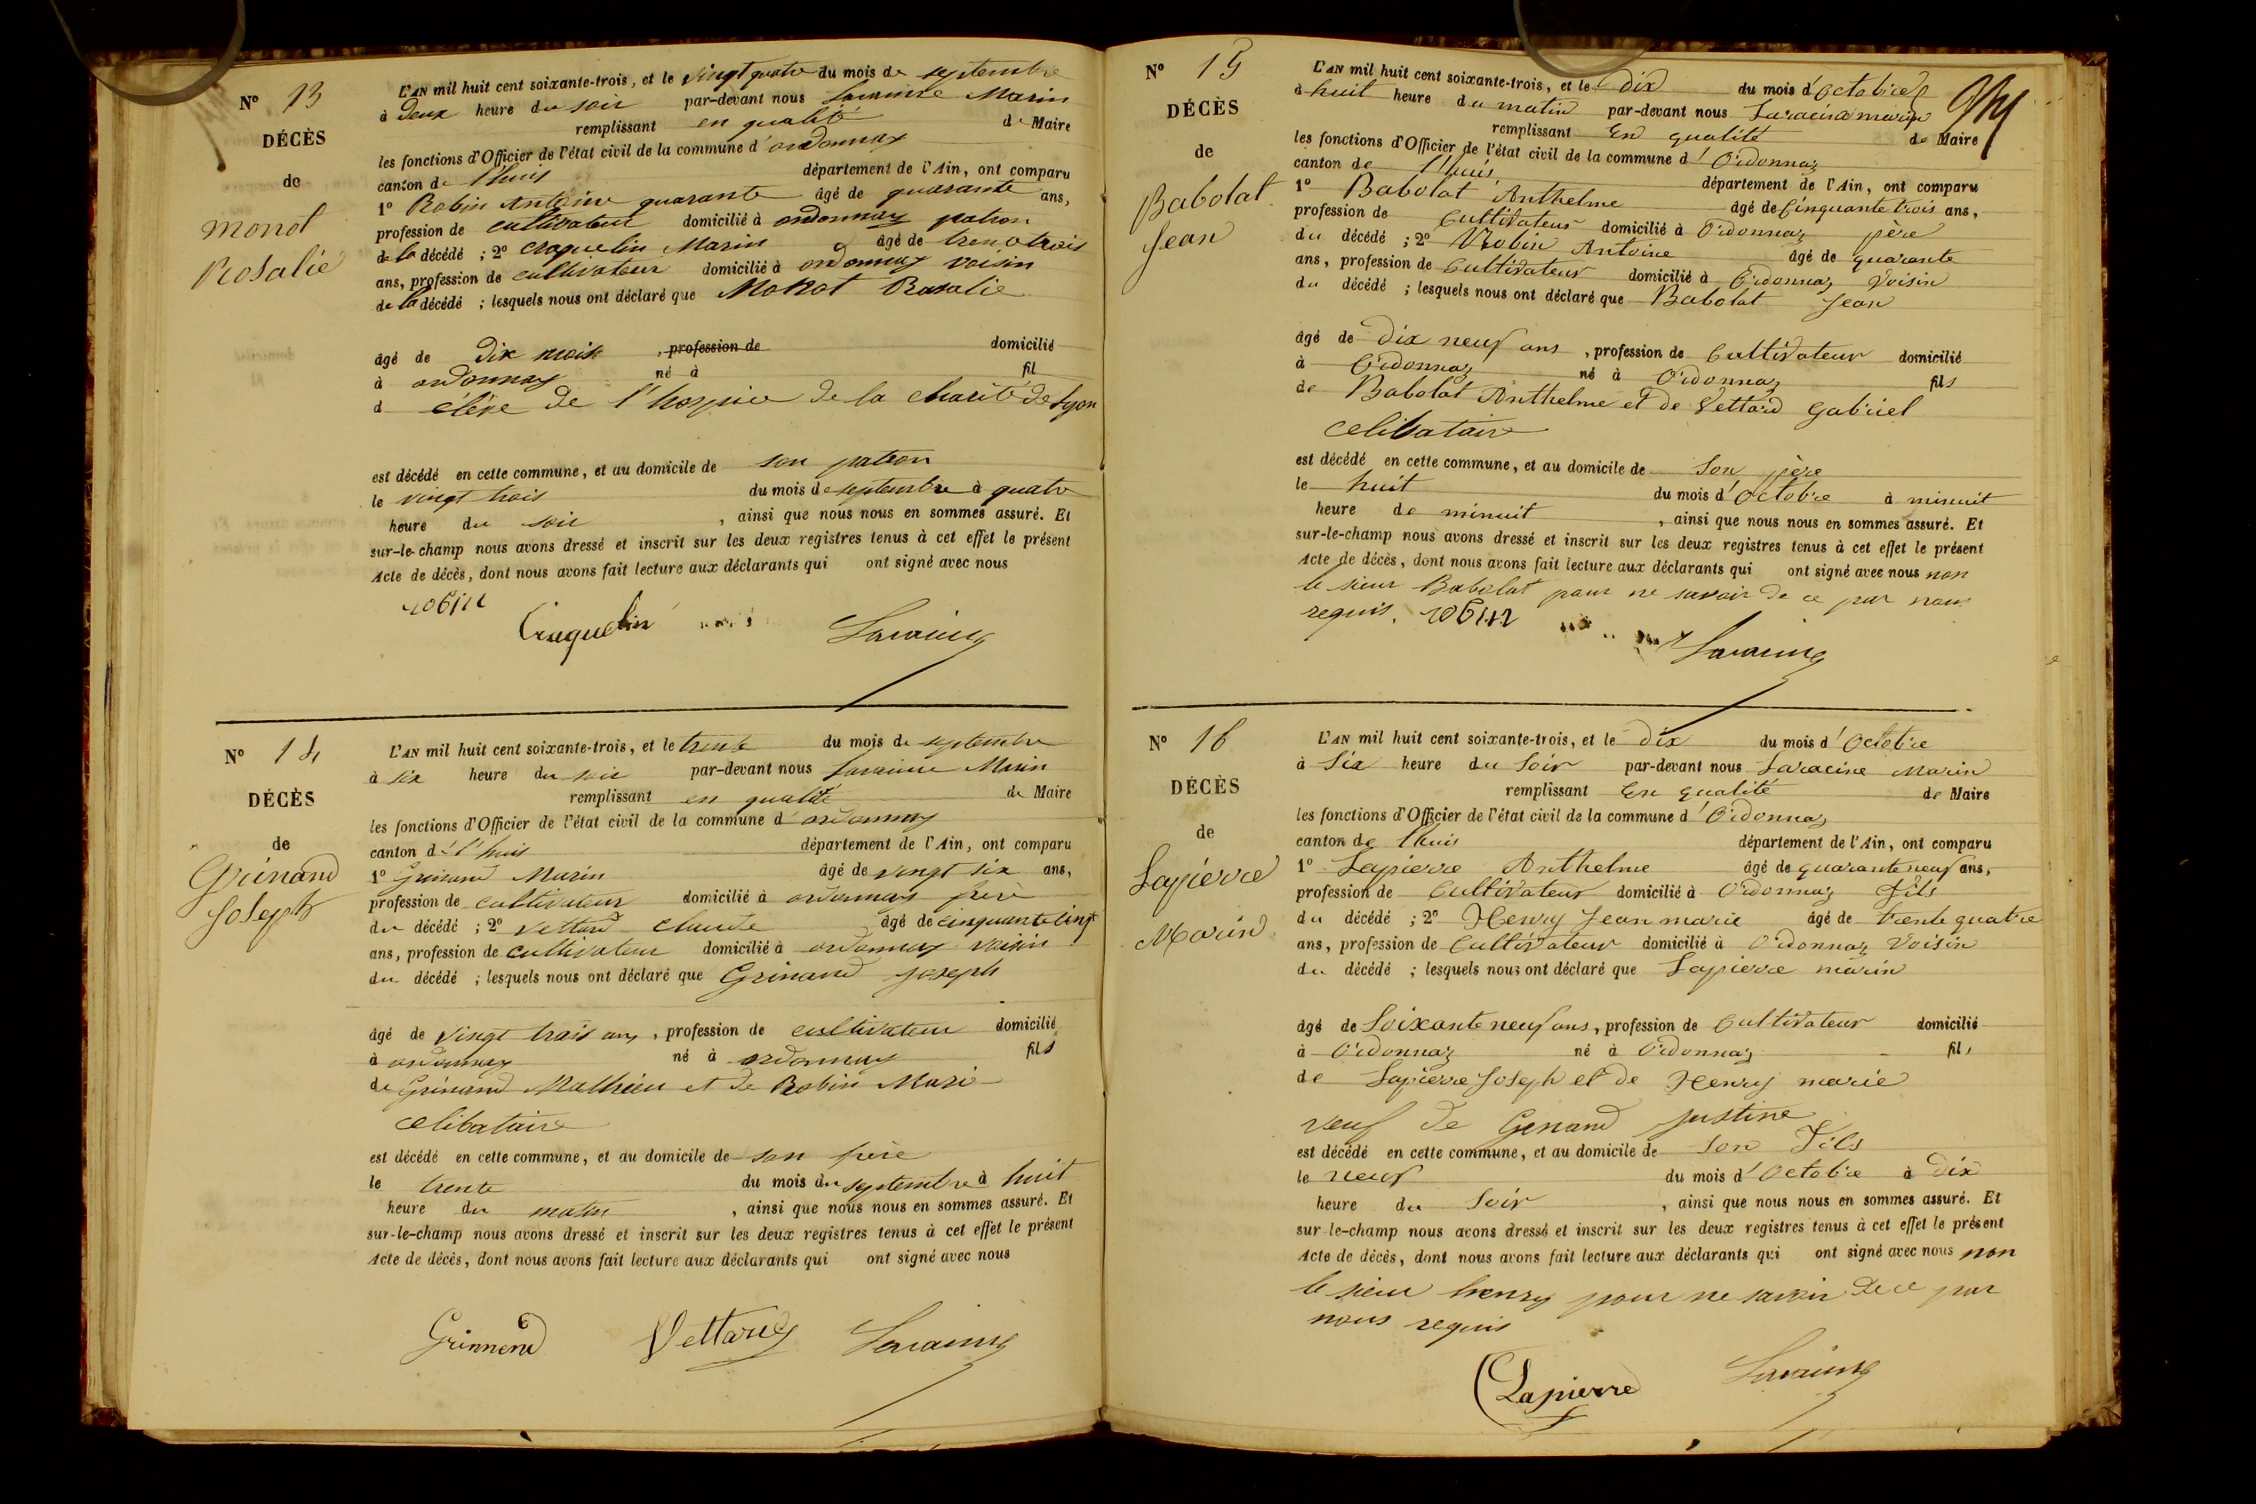 N° 13
DÉCÈS
de
monot
Rosalie
L'AN mil huit cent soixante-trois, et le vingt quatre du mois de septembre
à deux heure du soir par-devant nous Saracine Marin
remplissant en qualité de Maire
les fonctions d'Officier de l'état civil de la commune d'ordonnaz
canton de l'huis département de l'Ain, ont comparu
1° Robin Antoine quarante âgé de quarante ans,
profession de cultivateur domicilié à ordonnaz patron
de la décédé ; 2° Craquelin Marin âgé de trente trois
ans, profession de cultivateur domicilié à ordonnaz voisin
de la décédé ; lesquels nous ont déclaré que Monot Rosalie
âgé de dix mois , profession de domicilié
à ordonnaz né à fil
d élève de l'hospice de la charité de Lyon
est décédé en cette commune, et au domicile de son patron
le vingt trois du mois de septembre à quatre
heure du soir , ainsi que nous nous en sommes assuré. Et
sur-le-champ nous avons dressé et inscrit sur les deux registres tenus à cet effet le présent
Acte de décès, dont nous avons fait lecture aux déclarants qui ont signé avec nous
robin Craquelin Saracine
N° 14
DÉCÈS
de
Grinand
Joseph
L'AN mil huit cent soixante-trois, et le trente du mois de septembre
à six heure du soir par-devant nous Saracine Marin
remplissant en qualité de Maire
les fonctions d'Officier de l'état civil de la commune d'ordonnaz
canton d l'huis département de l'Ain, ont comparu
1° Grinand Marin âgé de vingt six ans,
profession de cultivateur domicilié à ordonnaz frère
du décédé ; 2° vettard claude âgé de cinquante cinq
ans, profession de cultivateur domicilié à ordonnaz voisin
du décédé ; lesquels nous ont déclaré que Grinand joseph
âgé de vingt trois ans , profession de cultivateur domicilié
à ordonnaz né à ordonnaz fils
de Grinand Mathieu et de Robin Marie
celibataire
est décédé en cette commune, et au domicile de son père
le trente du mois de septembre à huit
heure du matin , ainsi que nous nous en sommes assuré. Et
sur-le-champ nous avons dressé et inscrit sur les deux registres tenus à cet effet le présent
Acte de décès, dont nous avons fait lecture aux déclarants qui ont signé avec nous
Grinnend Vettard Saracine
N° 15
DÉCÈS
de
Babolat
Jean
L'AN mil huit cent soixante-trois, et le dix du mois d'Octobre
à huit heure du matin par-devant nous Saracine marin
remplissant En qualité de Maire
les fonctions d'Officier de l'état civil de la commune d'Ordonnaz
canton de l'huis département de l'Ain, ont comparu
1° Babolat Anthelme âgé de Cinquante trois ans,
profession de Cultivateur domicilié à Ordonnaz père
du décédé ; 2° Robin Antoine âgé de quarante
ans, profession de Cultivateur domicilié à Ordonnaz Voisin
du décédé ; lesquels nous ont déclaré que Babolat Jean
âgé de Dix neuf ans , profession de Cultivateur domicilié
à Ordonnaz né à Ordonnaz fils
de Babolat Anthelme et de Vettard Gabriel
celibataire
est décédé en cette commune, et au domicile de Son père
le huit du mois d'Octobre à minuit
heure de minuit , ainsi que nous nous en sommes assuré. Et
sur-le-champ nous avons dressé et inscrit sur les deux registres tenus à cet effet le présent
Acte de décès, dont nous avons fait lecture aux déclarants qui ont signé avec nous non
le sieur Babolat pour ne savoir de ce par nous
requis. robin Saracine
N° 16
DÉCÈS
de
Lapierre
Marin
L'AN mil huit cent soixante-trois, et le dix du mois d'Octobre
à Six heure du Soir par-devant nous Saracine Marin
remplissant En qualité de Maire
les fonctions d'Officier de l'état civil de la commune d'Ordonnaz
canton de lhuis département de l'Ain, ont comparu
1° Lapierre Anthelme âgé de quarante neuf ans,
profession de Cultivateur domicilié à Ordonnaz Fils
du décédé ; 2° Henry Jean marie âgé de trente quatre
ans, profession de Cultivateur domicilié à Ordonnaz Voisin
du décédé ; lesquels nous ont déclaré que Lapierre marin
âgé de Soixante neuf ans, profession de Cultivateur domicilié
à Ordonnaz né à Ordonnaz fils
de Lapierre Joseph et de Henry marie
veuf de Genand justine
est décédé en cette commune, et au domicile de Son Fils
le neuf du mois d'Octobre à Dix
heure du Soir , ainsi que nous nous en sommes assuré. Et
sur-le-champ nous avons dressé et inscrit sur les deux registres tenus à cet effet le présent
Acte de décès, dont nous avons fait lecture aux déclarants qui ont signé avec nous non
le sieur henry pour ne savoir de ce par
nous requis
Lapierre Saracine